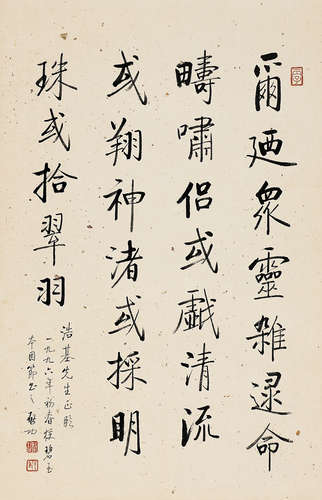 爾廼衆靈雜遝命
疇嘯侶或戲清流
或翔神渚或採明
珠或拾翠羽
浩基先生正腕
一九九六年初春檢碧玉
本因節書之 啟功